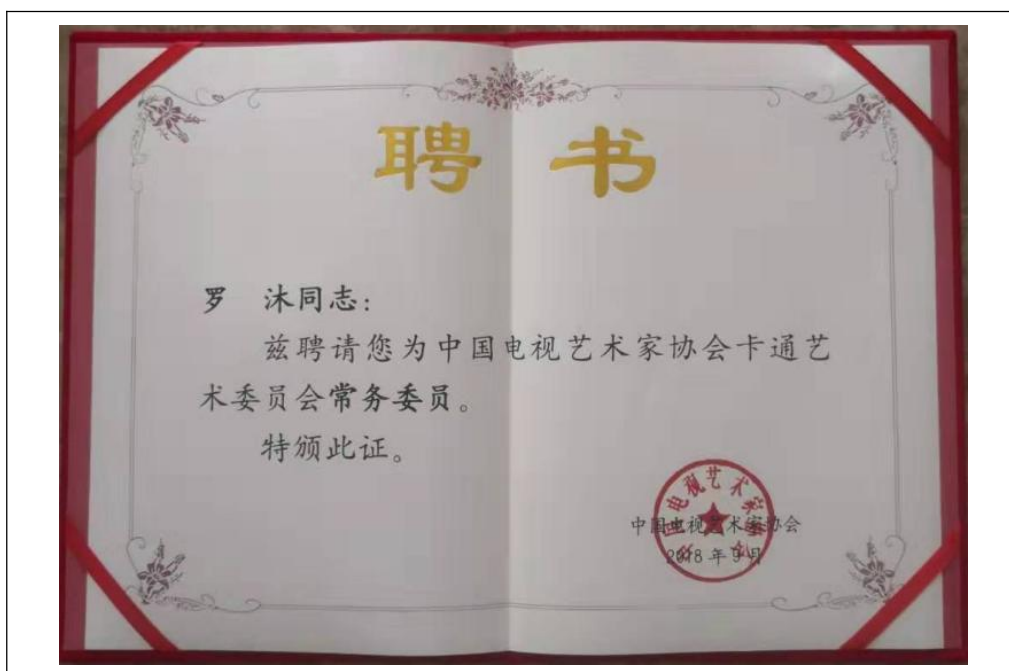 聘书
罗 沐同志：
兹聘请您为中国电视艺术家协会卡通艺
术委员会常务委员。
特颁此证。
中国电视艺术家协会
2018年9月